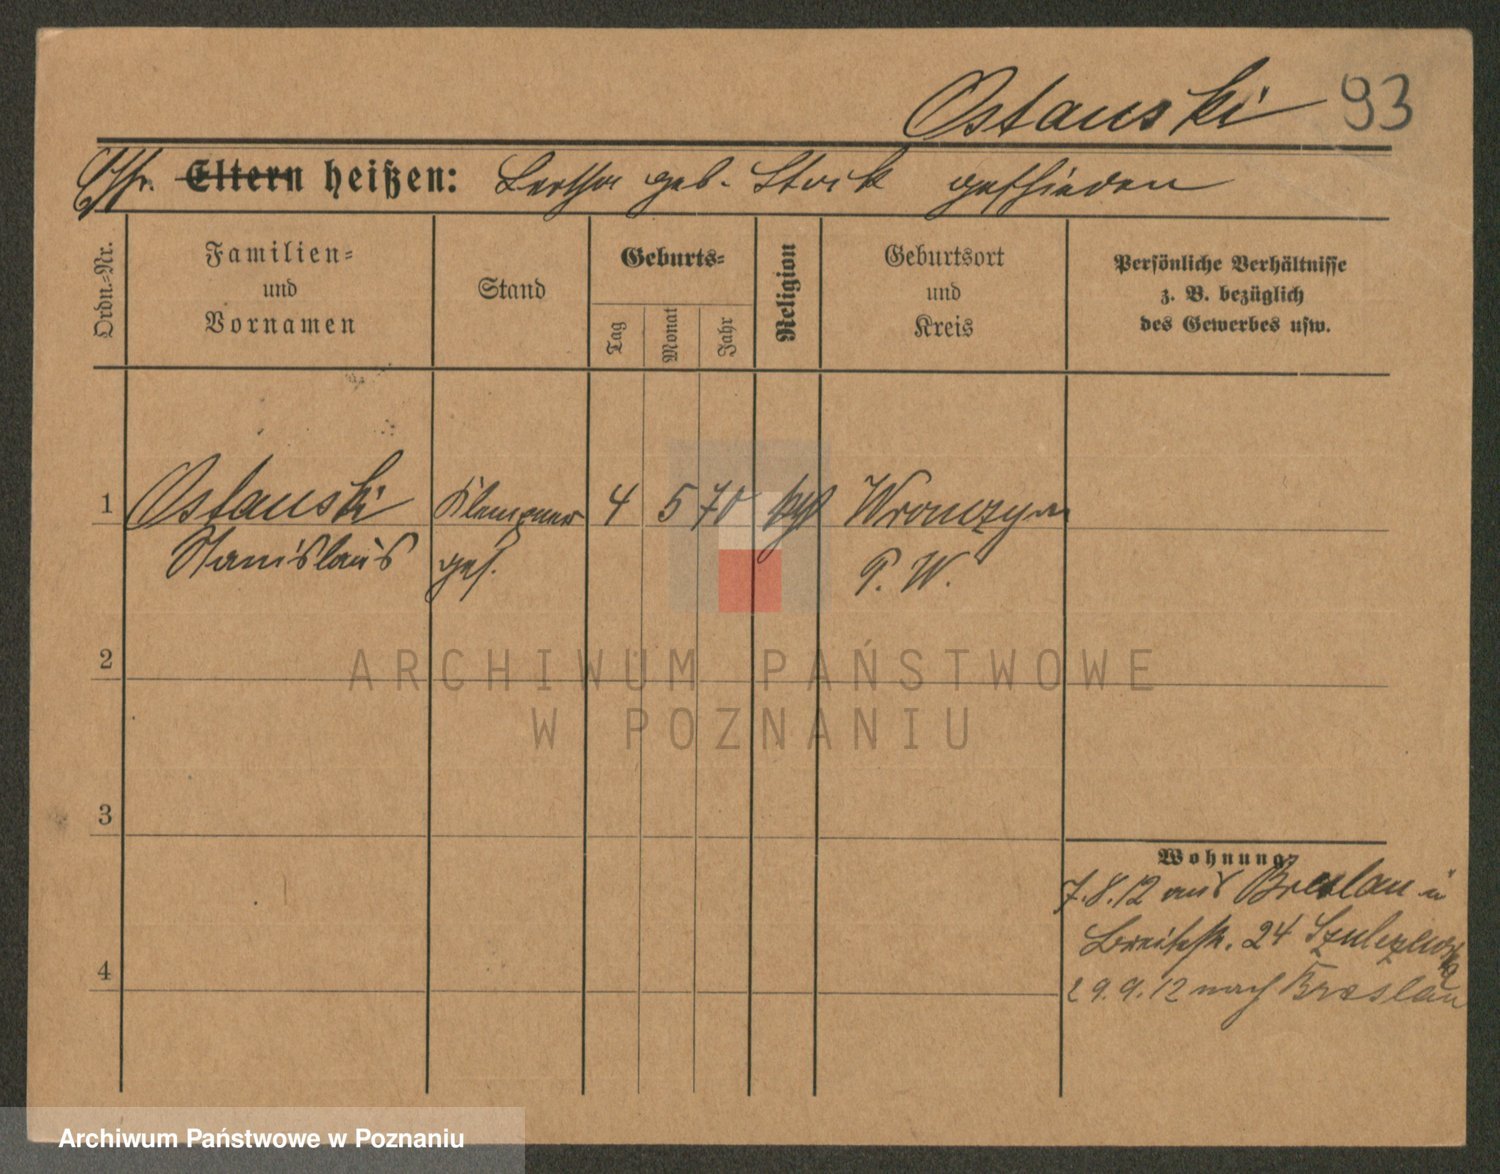 Ostanski 93
Ehfr. Eltern heißen: Bertha geb. Stock geschieden
Ordn.-Nr.
Familien-
und
Vornamen
Stand
Geburts-
Tag
Monat
Jahr
Religion
Geburtsort
und
Kreis
Persönliche Verhältnisse
z. B. bezüglich
des Gewerbes usw.
1 Ostanski Klempner 4 5 70 kath Wronczyn
Stanislaus ges. P. W.
2
ARCHIWUM PAŃSTWOWE
W POZNANIU
3
Wohnung:
7.8.12 aus Breslau
Breitestr. 24
4
29.9.12 nach Breslau
Archiwum Państwowe w Poznaniu